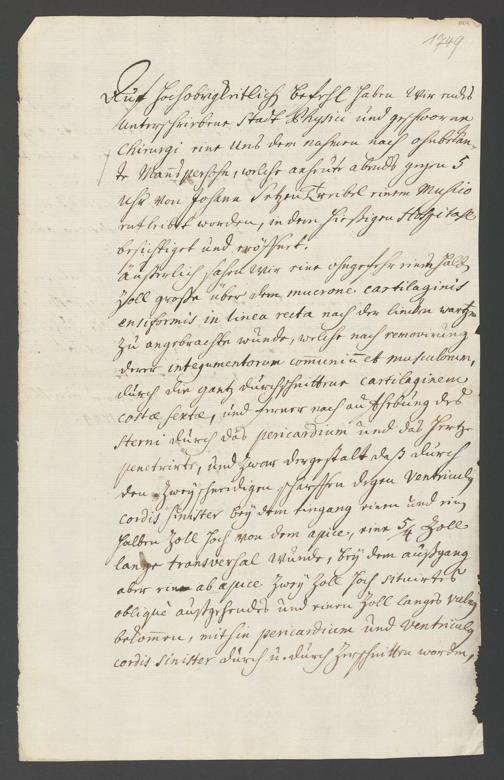 1749
Auf Hochobrigkeitlich befehl haben Wir endes
Unterschriebene Stadt Physici und geschworne
Chirurgi eine Uns dem nahmen nach ohnbekan-
te Manns persohn, welche anheute abends gegen 5
Uhr von Johann Treibel einem Musico
entleibet worden, in dem hiesigen Hospitale
besichtiget und eröffnet.
äusserlich sahen Wir eine ohngefehr einen halb
Zoll grosse über dem mucrone cartilaginis
ensiformis in linea recta nach der lincken wartze
zu angebrachte wunde, welche nach removirung
derer integumentorum communiū et musculorum,
durch die gantz durchschnittene cartilaginem
costæ sextæ, und ferner nach aufhebung des
sterni durch das pericardium und das Hertze
penetrirte, und zwar dergestalt daß durch
den zweyschneidigen scharffen degen Ventriculus
cordis sinister bey dem eingang einen und ein
halben Zoll hoch von dem apice, eine 5/4 Zoll
lange transversal wunde, bey dem außgang
aber ein ab apice zwey Zoll hoch situirtes
oblique außgehendes und einen Zoll langes vulnus
bekommen, mithin pericardium und Ventriculus
cordis sinister durch u. durch zerschnitten worden,